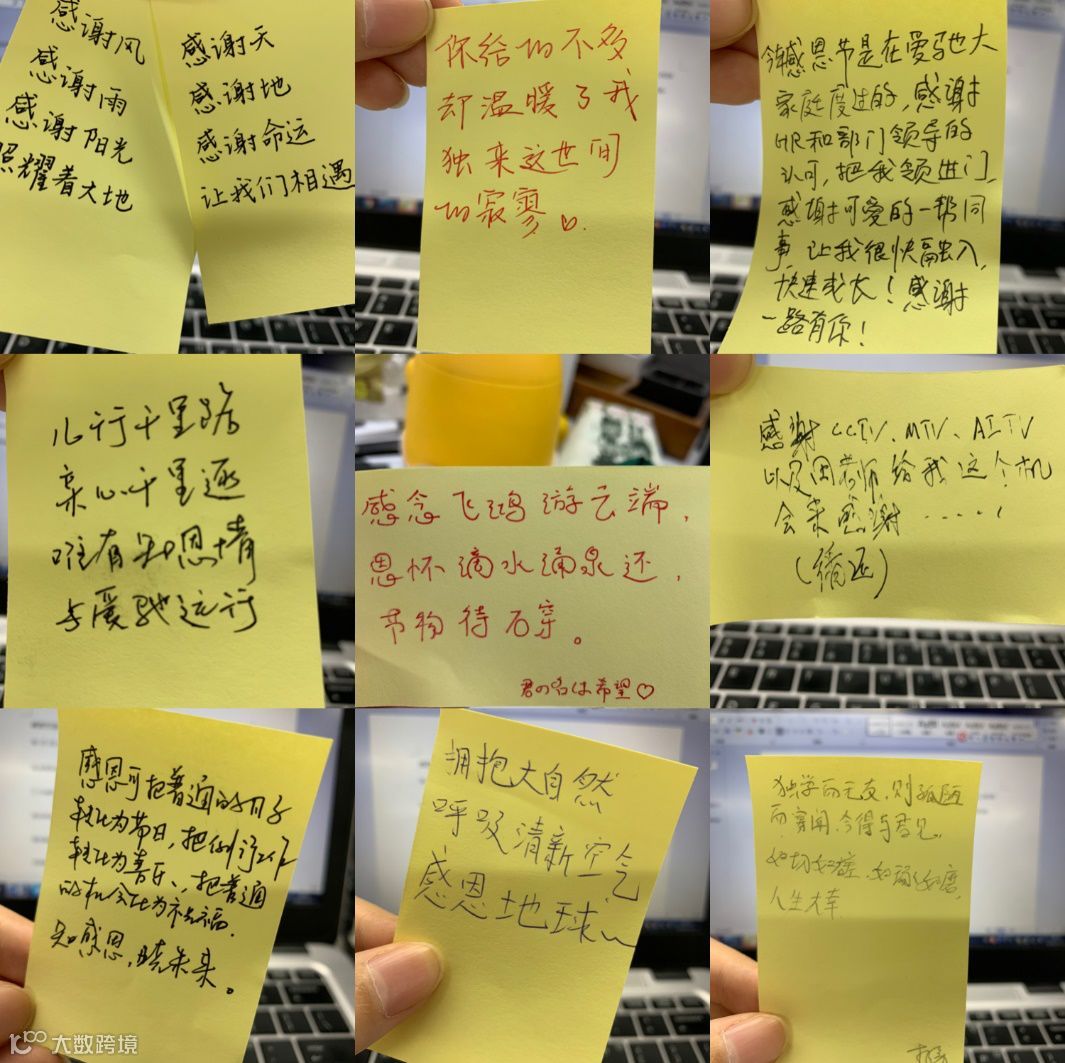 感谢风
感谢雨
感谢阳光
照耀着大地
感谢天
感谢地
感谢命运
让我们相遇
你给的不多
却温暖了我
独来这世间
的寂寥♡.
今年感恩节是在爱驰大
家庭度过的,感谢
HR和部门领导的
认可,把我领进门,
感谢可爱的一帮同
事,让我很快融入,
快速成长!感谢
一路有你!
儿行千里路
亲心千里逐
唯有知恩情
与爱驰远行
感念飞鸿游云端,
恩怀滴水涌泉还,
节物待石穿。
君の名は希望♡
感谢CCTV、MTV、AITV
以及因老师给我这个机
会来感谢……
(续还)
感恩可把普通的日子
转化为节日,把例行工作
转化为喜乐,把普通
的机会化为祝福.
知感恩,晓未来。
拥抱大自然
呼吸清新空气
感恩地球~
独学而无友,则孤陋
而寡闻,今得与君见,
如切如磋,如琢如磨,
人生大幸.
大数跨境